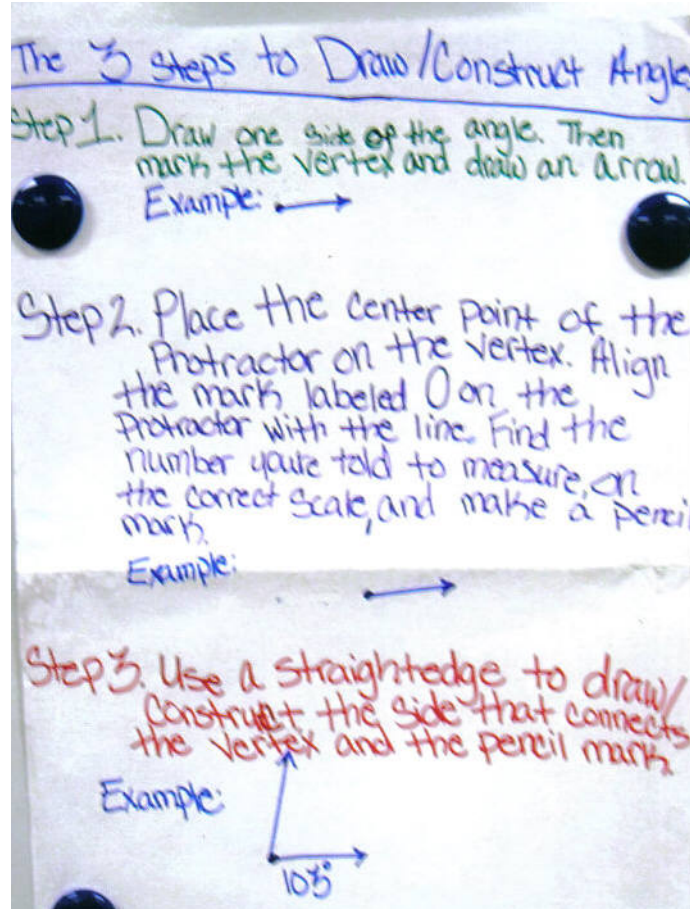 The 3 Steps to Draw/Construct Angles
Step 1. Draw one side of the angle. Then
mark the vertex and draw an arrow.
Example:
Step 2. Place the center point of the
Protractor on the vertex. Align
the mark labeled 0 on the
Protractor with the line. Find the
number you're told to measure, on
the correct scale, and make a pencil
mark.
Example:
Step 3. Use a straightedge to draw/
construct the side that connects
the vertex and the pencil mark.
Example:
103°